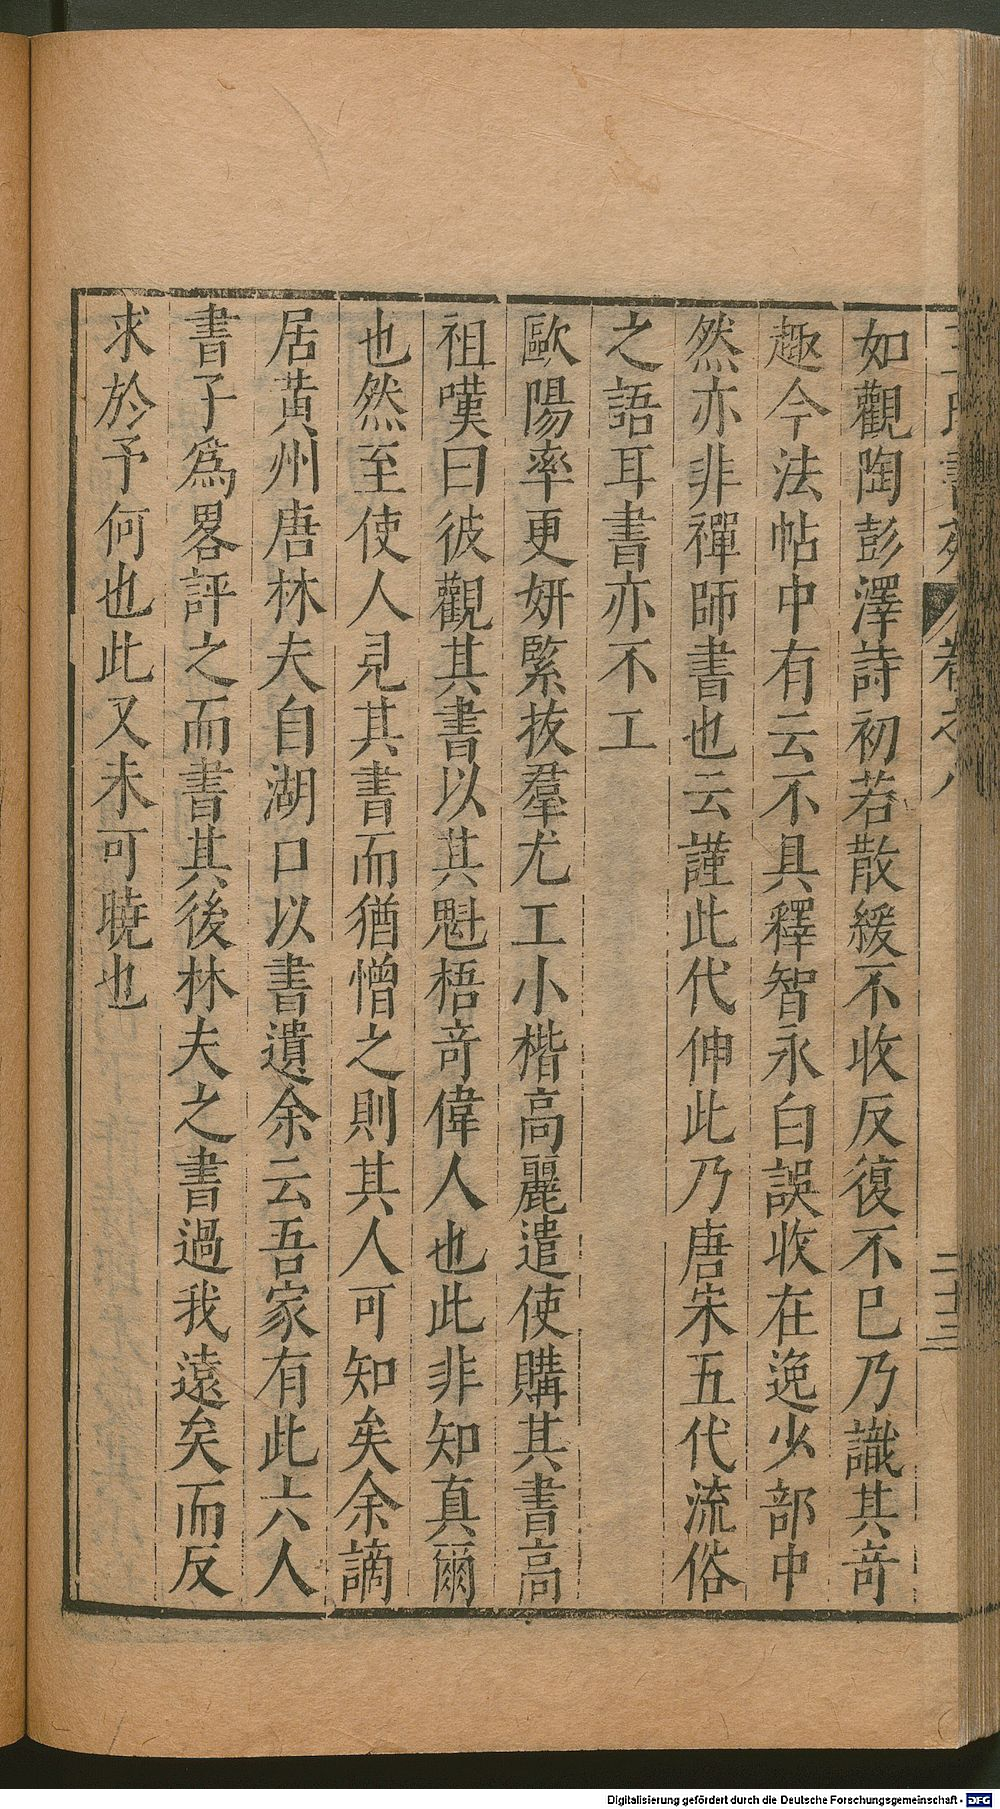 王氏書苑 卷之八 二十三
如觀陶彭澤詩初若散緩不收反復不已乃識其奇
趣今法帖中有云不具釋智永白誤收在逸少部中
然亦非禪師書也云謹此代伸此乃唐宋五代流俗
之語耳書亦不工
歐陽率更妍緊拔羣尤工小楷高麗遣使購其書高
祖嘆曰彼觀其書以其魁梧奇偉人也此非知真爾
也然至使人見其書而猶憎之則其人可知矣余謫
居黃州唐林夫自湖口以書遺余云吾家有此六人
書子爲畧評之而書其後林夫之書過我遠矣而反
求於予何也此又未可曉也
Digitalisierung gefördert durch die Deutsche Forschungsgemeinschaft - DFG